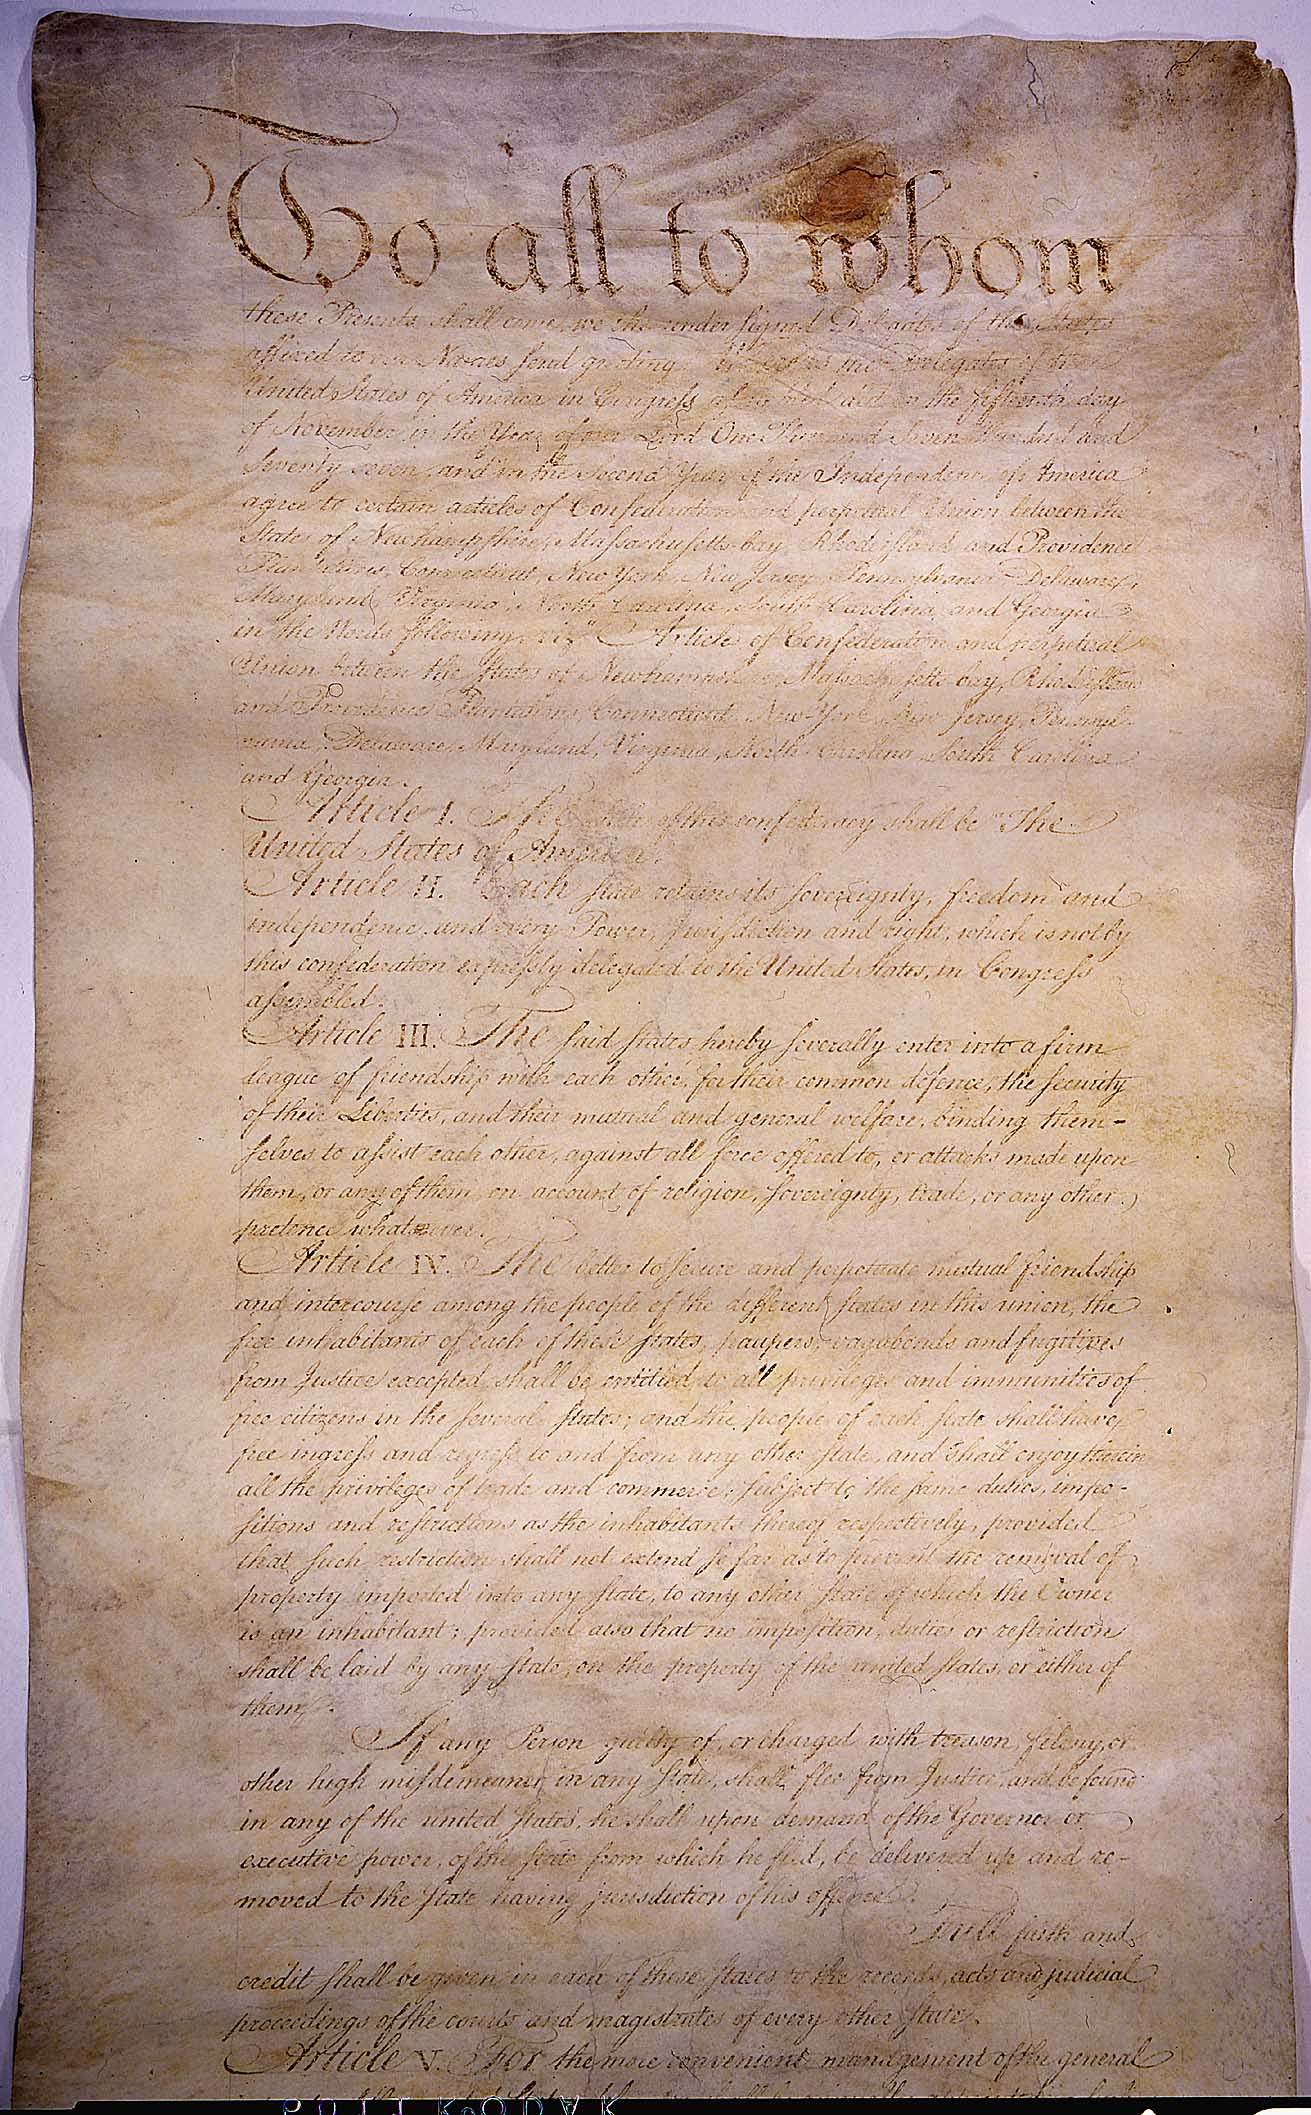 To all to whom
these Presents shall come, we the under signed Delegates of the States
affixed to our Names send greeting. Whereas the Delegates of the
United States of America in Congress assembled did on the fifteenth day
of November in the Year of our Lord One Thousand Seven Hundred and
Seventy seven, and in the Second Year of the Independence of America
agree to certain articles of Confederation and perpetual Union between the
States of Newhampshire, Massachusetts-bay, Rhodeisland and Providence
Plantations, Connecticut, New York, New Jersey, Pennsylvania, Delaware,
Maryland, Virginia, North Carolina, South Carolina, and Georgia
in the Words following, viz. Articles of Confederation and perpetual
Union between the States of Newhampshire, Massachusetts-bay, Rhodeisland
and Providence Plantations, Connecticut, New-York, New-Jersey, Pennsyl-
vania, Delaware, Maryland, Virginia, North-Carolina, South-Carolina
and Georgia.
Article I. The Stile of this confederacy shall be "The
United States of America.
Article II. Each state retains its sovereignty, freedom and
independence, and every Power, Jurisdiction and right, which is not by
this confederation expressly delegated to the United States, in Congress
assembled.
Article III. The said states hereby severally enter into a firm
league of friendship with each other, for their common defence, the security
of their Liberties, and their mutual and general welfare, binding them-
selves to assist each other, against all force offered to, or attacks made upon
them, or any of them, on account of religion, sovereignty, trade, or any other
pretence whatever.
Article IV. The better to secure and perpetuate mutual friendship
and intercourse among the people of the different states in this union, the
free inhabitants of each of these states, paupers, vagabonds and fugitives
from Justice excepted, shall be entitled to all privileges and immunities of
free citizens in the several states; and the people of each state shall have
free ingress and regress to and from any other state, and shall enjoy therein
all the privileges of trade and commerce, subject to the same duties, impo-
sitions and restrictions as the inhabitants thereof respectively, provided
that such restriction shall not extend so far as to prevent the removal of
property imported into any state, to any other state of which the Owner
is an inhabitant; provided also that no imposition, duties or restriction
shall be laid by any state, on the property of the united states, or either of
them.
If any Person guilty of, or charged with treason, felony, or
other high misdemeanor in any state, shall flee from Justice, and be found
in any of the united states, he shall upon demand of the Governor or
executive power, of the state from which he fled, be delivered up and re-
moved to the state having jurisdiction of his offence.
Full faith and
credit shall be given in each of these states to the records, acts and judicial
proceedings of the courts and magistrates of every other state.
Article V. For the more convenient management of the general